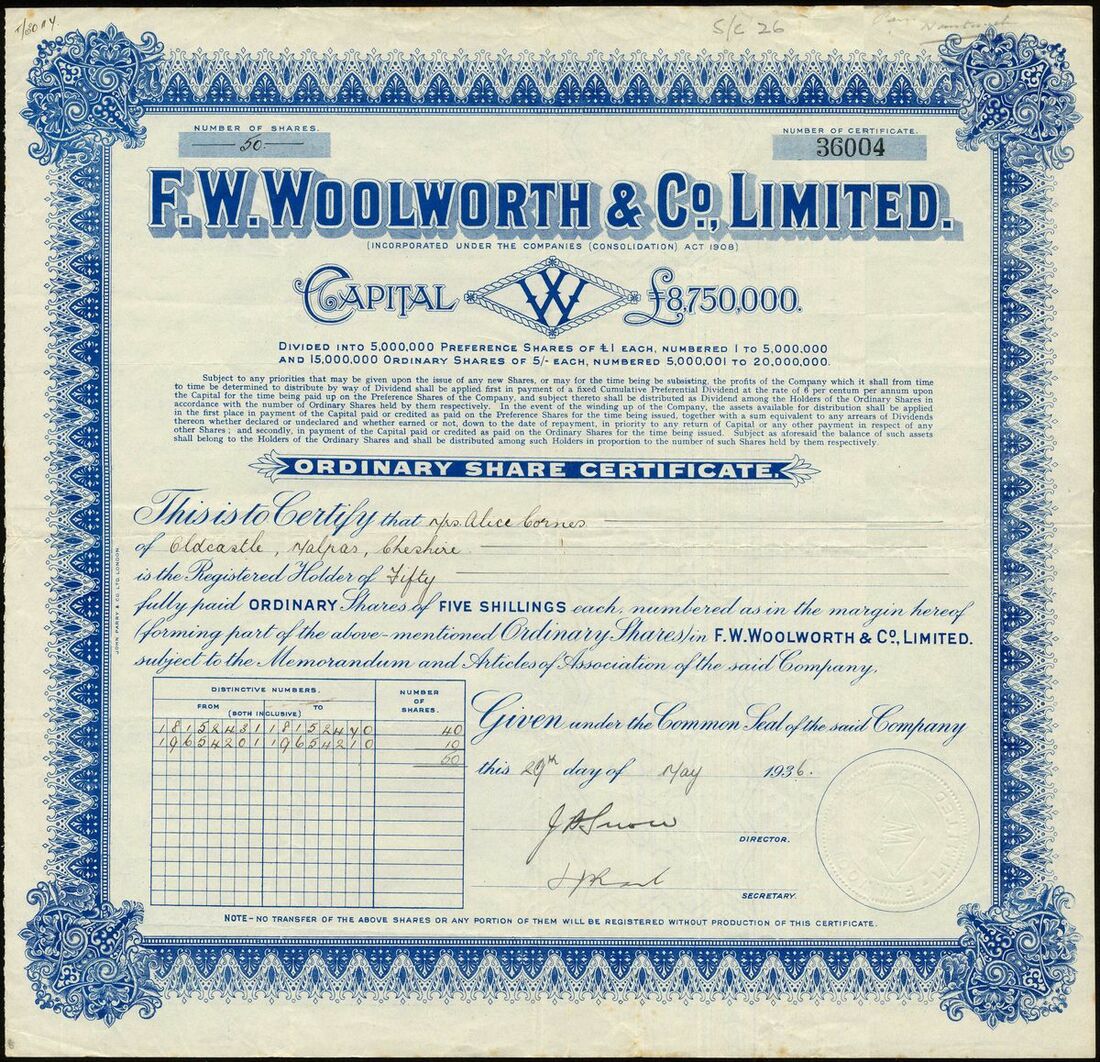 S/C 26
NUMBER OF SHARES.
50
NUMBER OF CERTIFICATE.
36004
F. W. WOOLWORTH & Co., LIMITED.
(INCORPORATED UNDER THE COMPANIES (CONSOLIDATION) ACT 1908)
CAPITAL W £8,750,000.
DIVIDED INTO 5,000,000 PREFERENCE SHARES OF £1 EACH, NUMBERED 1 TO 5,000,000
AND 15,000,000 ORDINARY SHARES OF 5/- EACH, NUMBERED 5,000,001 TO 20,000,000.
Subject to any priorities that may be given upon the issue of any new Shares, or may for the time being be subsisting, the profits of the Company which it shall from time
to time be determined to distribute by way of Dividend shall be applied first in payment of a fixed Cumulative Preferential Dividend at the rate of 6 per centum per annum upon
the Capital for the time being paid up on the Preference Shares of the Company, and subject thereto shall be distributed as Dividend among the Holders of the Ordinary Shares in
accordance with the number of Ordinary Shares held by them respectively. In the event of the winding up of the Company, the assets available for distribution shall be applied
in the first place in payment of the Capital paid or credited as paid on the Preference Shares for the time being issued, together with a sum equivalent to any arrears of Dividends
thereon whether declared or undeclared and whether earned or not, down to the date of repayment, in priority to any return of Capital or any other payment in respect of any
other Shares; and secondly, in payment of the Capital paid or credited as paid on the Ordinary Shares for the time being issued. Subject as aforesaid the balance of such assets
shall belong to the Holders of the Ordinary Shares and shall be distributed among such Holders in proportion to the number of such Shares held by them respectively.
ORDINARY SHARE CERTIFICATE.
This is to Certify that Mrs. Alice Cornes
of Oldcastle, Malpas, Cheshire
is the Registered Holder of Fifty
fully paid ORDINARY Shares of FIVE SHILLINGS each, numbered as in the margin hereof
(forming part of the above-mentioned Ordinary Shares) in F. W. WOOLWORTH & Co., LIMITED.
subject to the Memorandum and Articles of Association of the said Company,
JOHN PARRY & CO. LTD. LONDON.
DISTINCTIVE NUMBERS. NUMBER OF SHARES.
FROM (BOTH INCLUSIVE) TO
18152431 18152470 40
19654201 19654210 10
50
Given under the Common Seal of the said Company
this 29th day of May 1936.
DIRECTOR.
SECRETARY.
NOTE - NO TRANSFER OF THE ABOVE SHARES OR ANY PORTION OF THEM WILL BE REGISTERED WITHOUT PRODUCTION OF THIS CERTIFICATE.